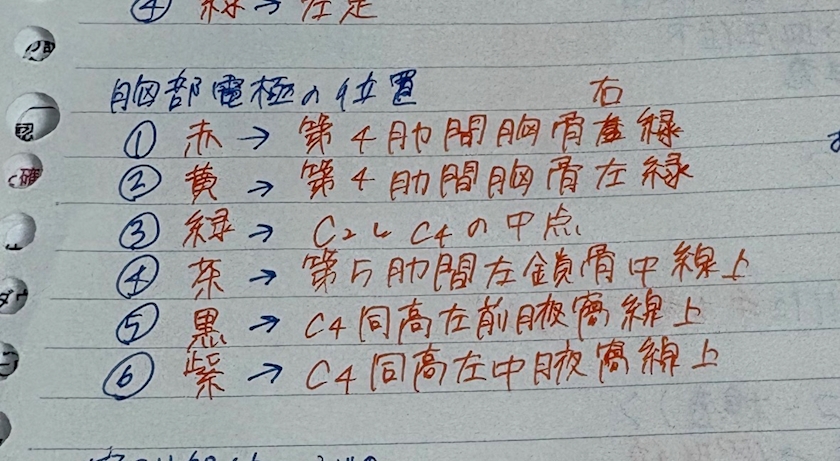 ④ 緑→左足
胸部電極の位置
右
① 赤→ 第4肋間胸骨縁
② 黄→ 第4肋間胸骨左縁
③ 緑→ C2とC4の中点
④ 茶→ 第5肋間左鎖骨中線上
⑤ 黒→ C4同高左前腋窩線上
⑥ 紫→ C4同高左中腋窩線上